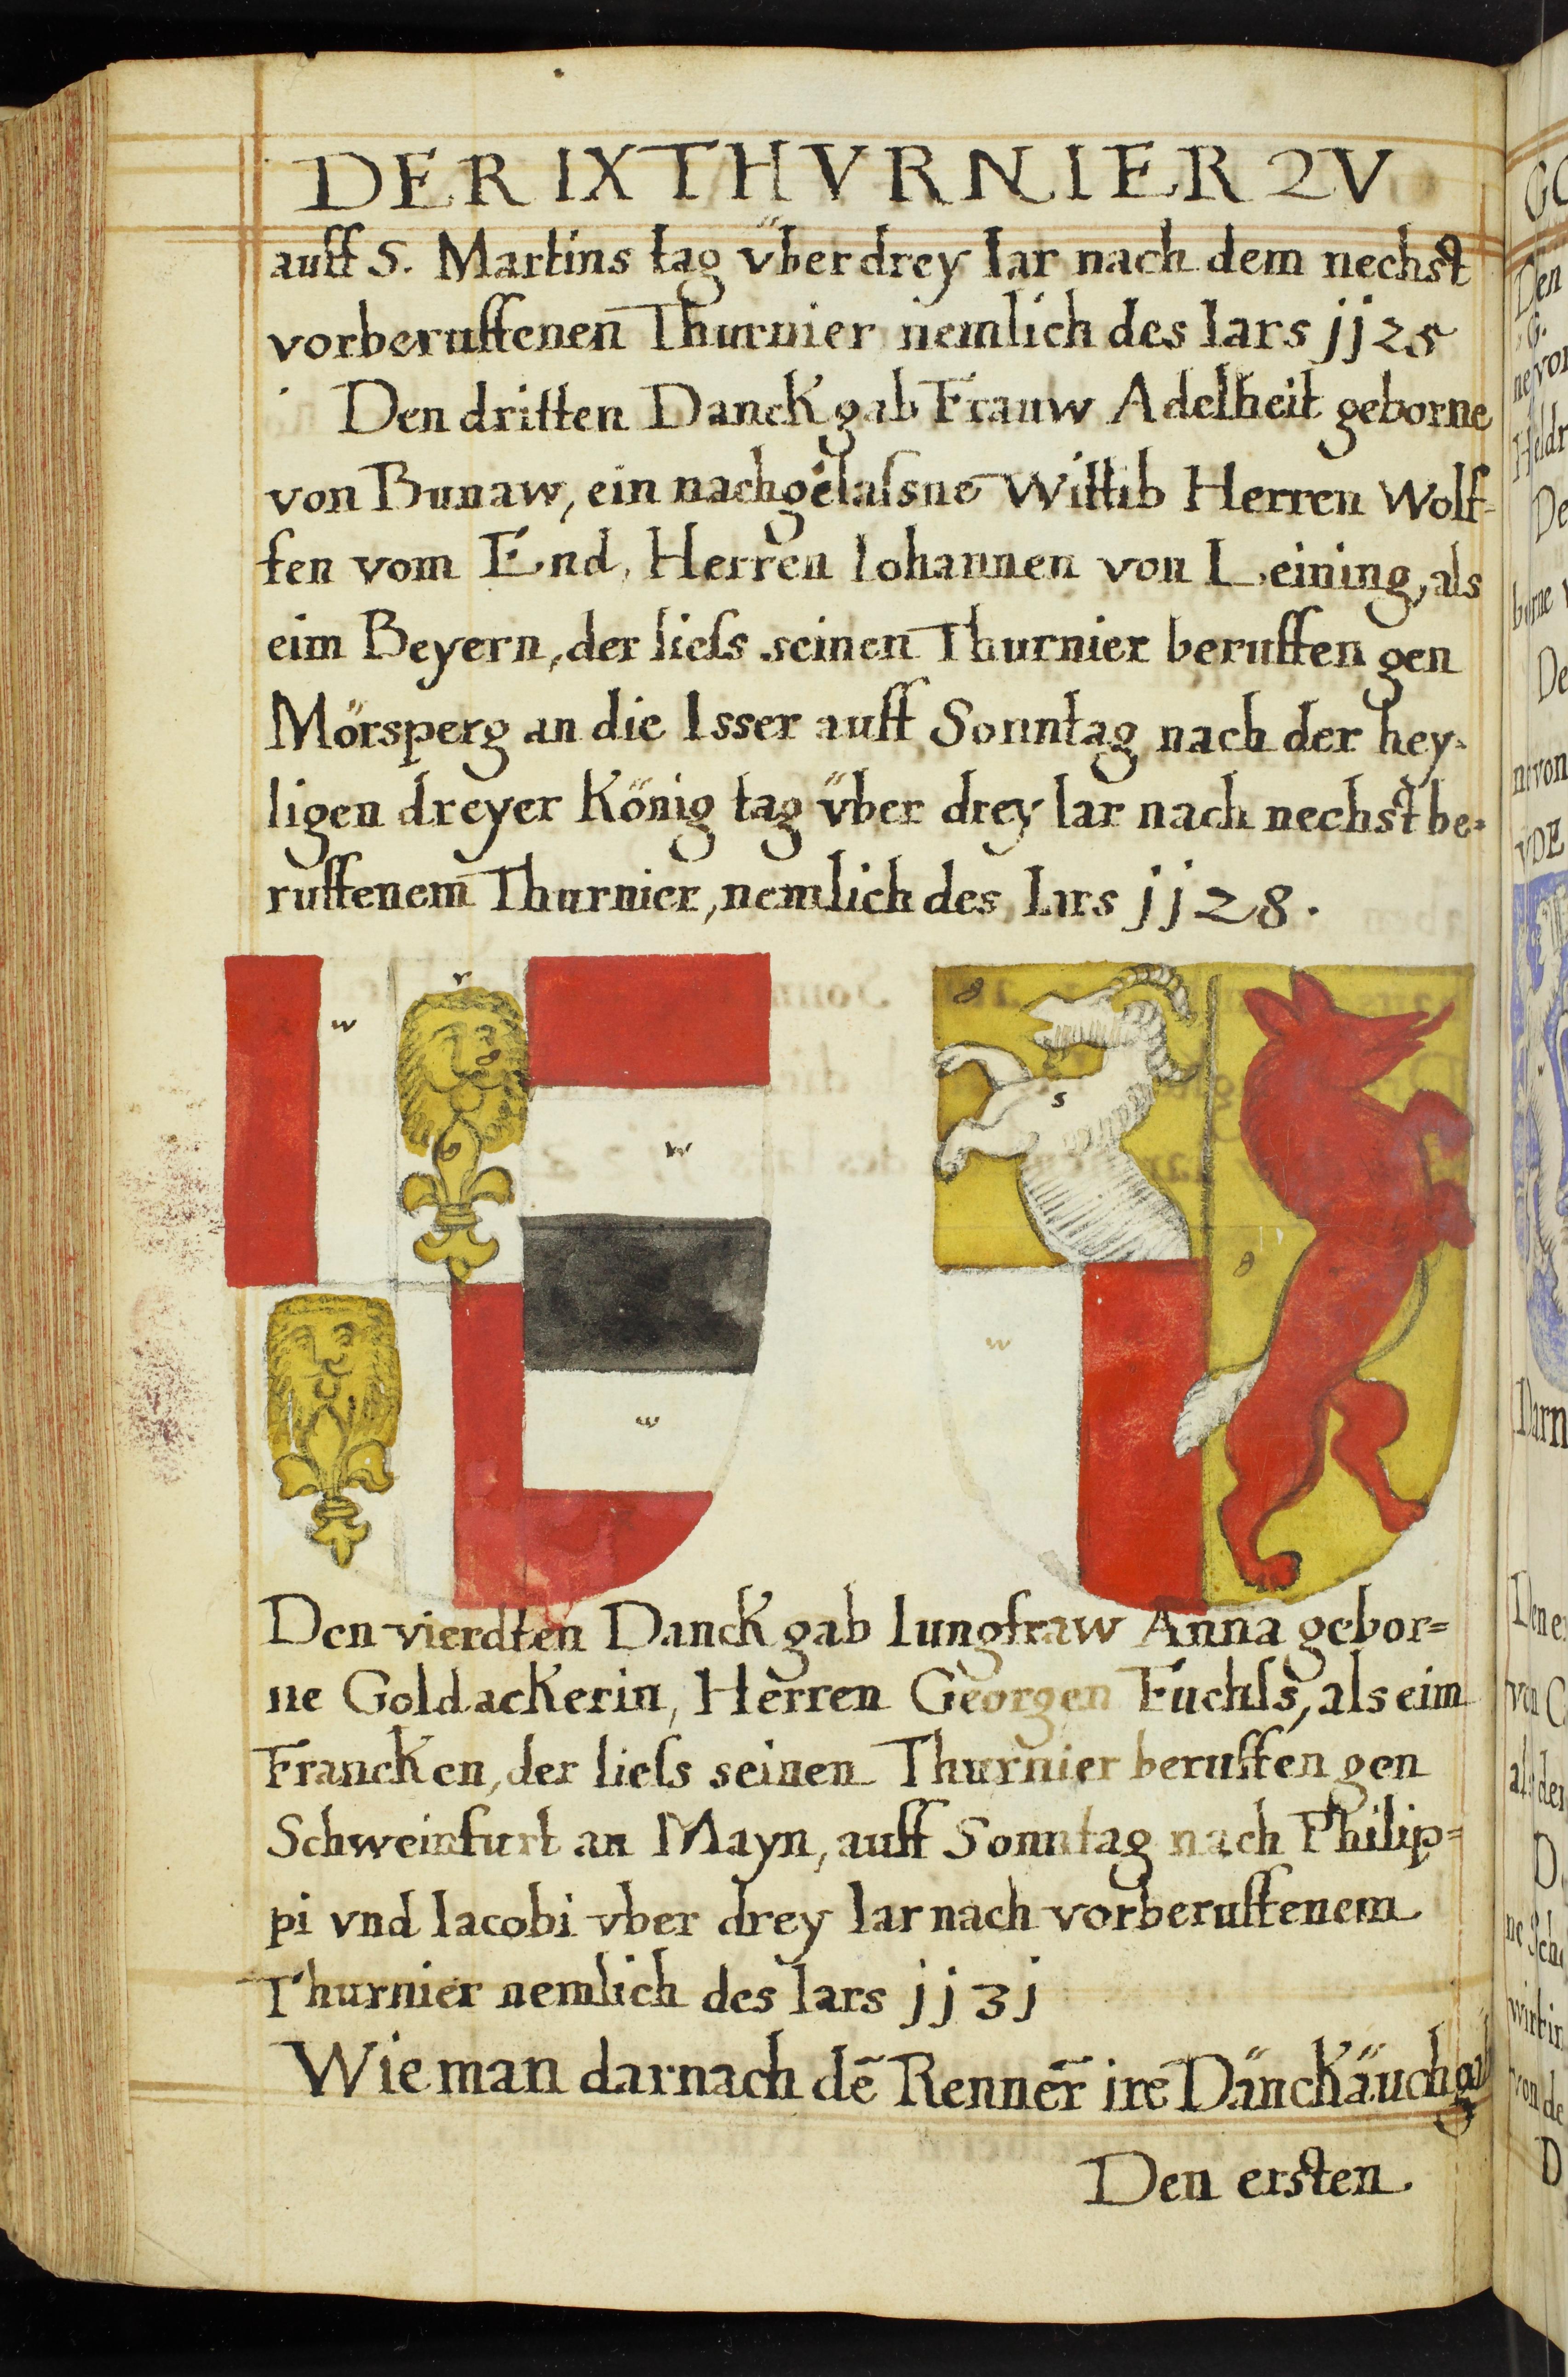 DER IX THVRNIER ZV
auff S. Martins tag v̈ber drey Iar nach dem nechst
vorberuffenen Thurnier nemlich des Iars jj25
Den dritten Danck gab Frauw Adelheit geborne
von Bunaw, ein nachgelaſsne Wittib Herren Wolf-
fen vom End, Herren Iohannen von Leining, als
eim Beyern, der lieſs seinen Thurnier beruffen gen
Mörsperg an die Isser auff Sonntag nach der hey-
ligen dreyer König tag v̈ber drey Iar nach nechst be-
ruffenem Thurnier, nemlich des Iars jj28.
r
w
w
w
g
s
g
w
Den vierdten Danck gab Iungfraw Anna gebor=
ne Goldackerin, Herren Georgen Fuchſs, als eim
Francken, der lieſs seinen Thurnier beruffen gen
Schweinfurt an Mayn, auff Sonntag nach Philip=
pi vnd Iacobi vber drey Iar nach vorberuffenem
Thurnier nemlich des Iars jj3j
Wie man darnach dē Rennēr irē Dänck äuch
Den ersten